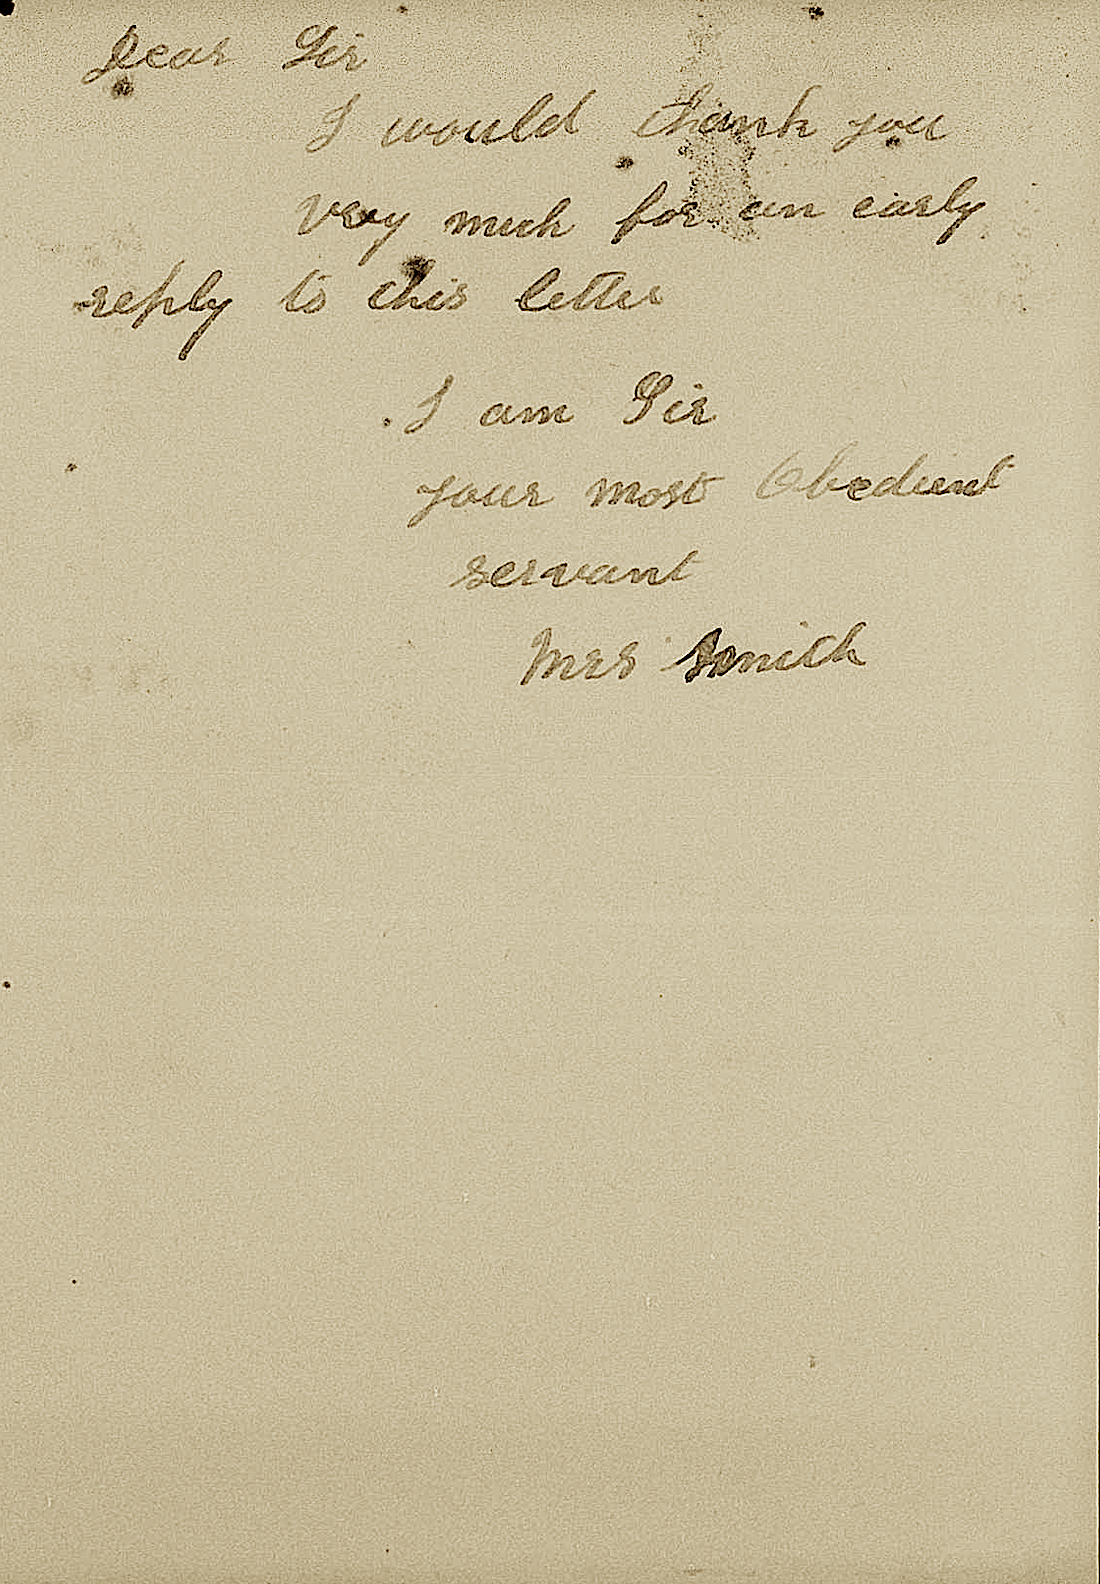 Dear Sir
I would thank you
very much for an early
reply to this letter
I am Sir
your most Obedient
servant
Mrs Smith